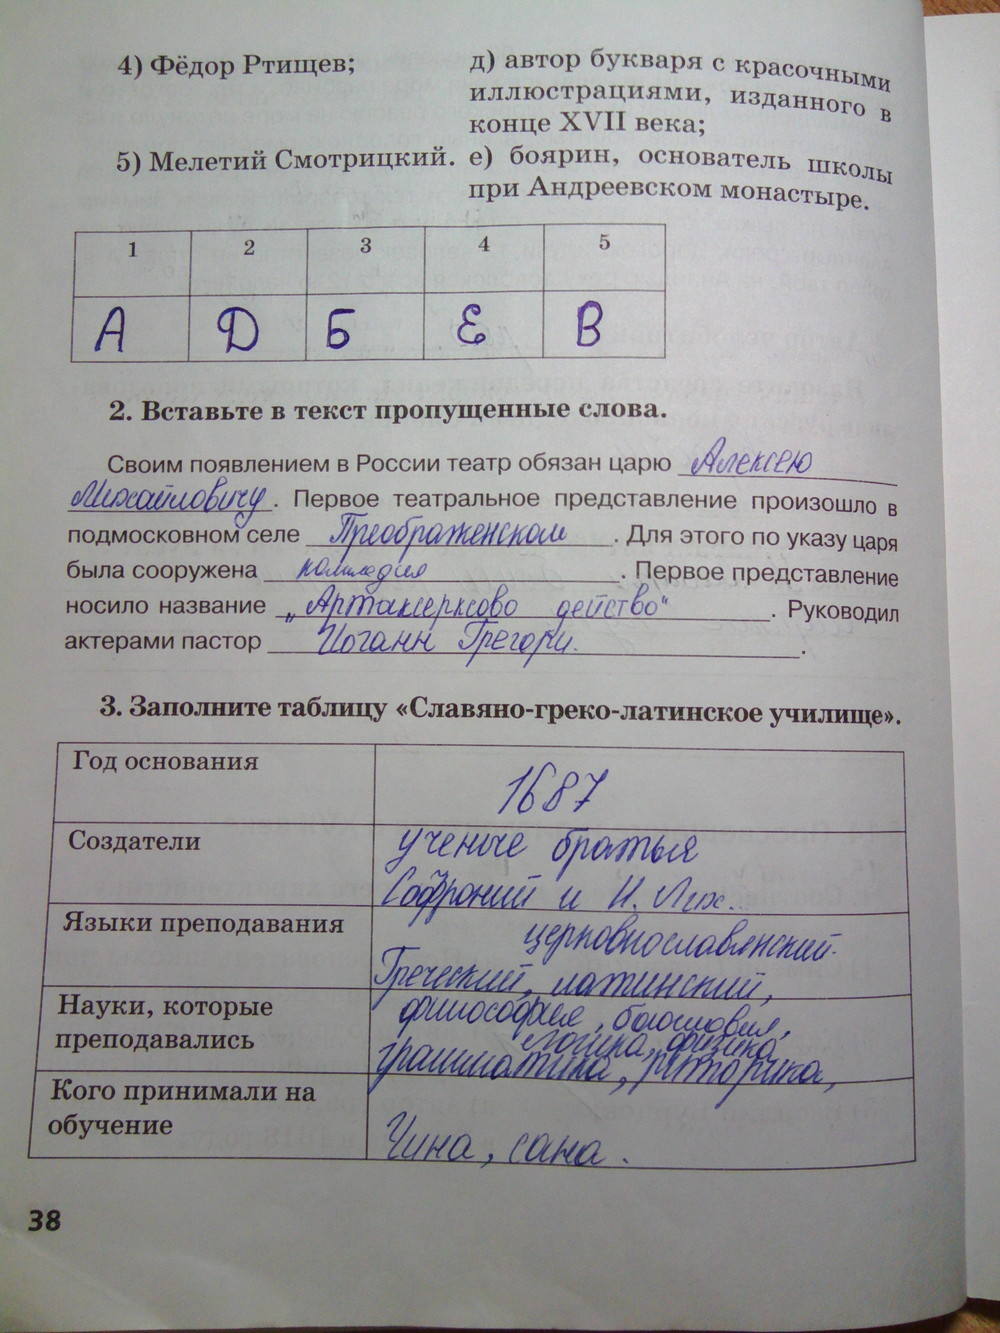 4) Фёдор Ртищев;
д) автор букваря с красочными
иллюстрациями, изданного в
конце XVII века;
5) Мелетий Смотрицкий.
е) боярин, основатель школы
при Андреевском монастыре.
1 2 3 4 5
А Д Б Е В
2. Вставьте в текст пропущенные слова.
Своим появлением в России театр обязан царю Алексею
Михайловичу. Первое театральное представление произошло в
подмосковном селе Преображенском. Для этого по указу царя
была сооружена . Первое представление
носило название „Артаксерксово действо". Руководил
актерами пастор Иоганн Грегори.
3. Заполните таблицу «Славяно-греко-латинское училище».
Год основания
1687
Создатели
ученые братья
Софроний и И. Лих.
Языки преподавания
церковнославянский.
Греческий, латинский,
Науки, которые
преподавались
философия, богословия,
логика, физика
грамматика, риторика,
Кого принимали на
обучение
Чина, сана.
38